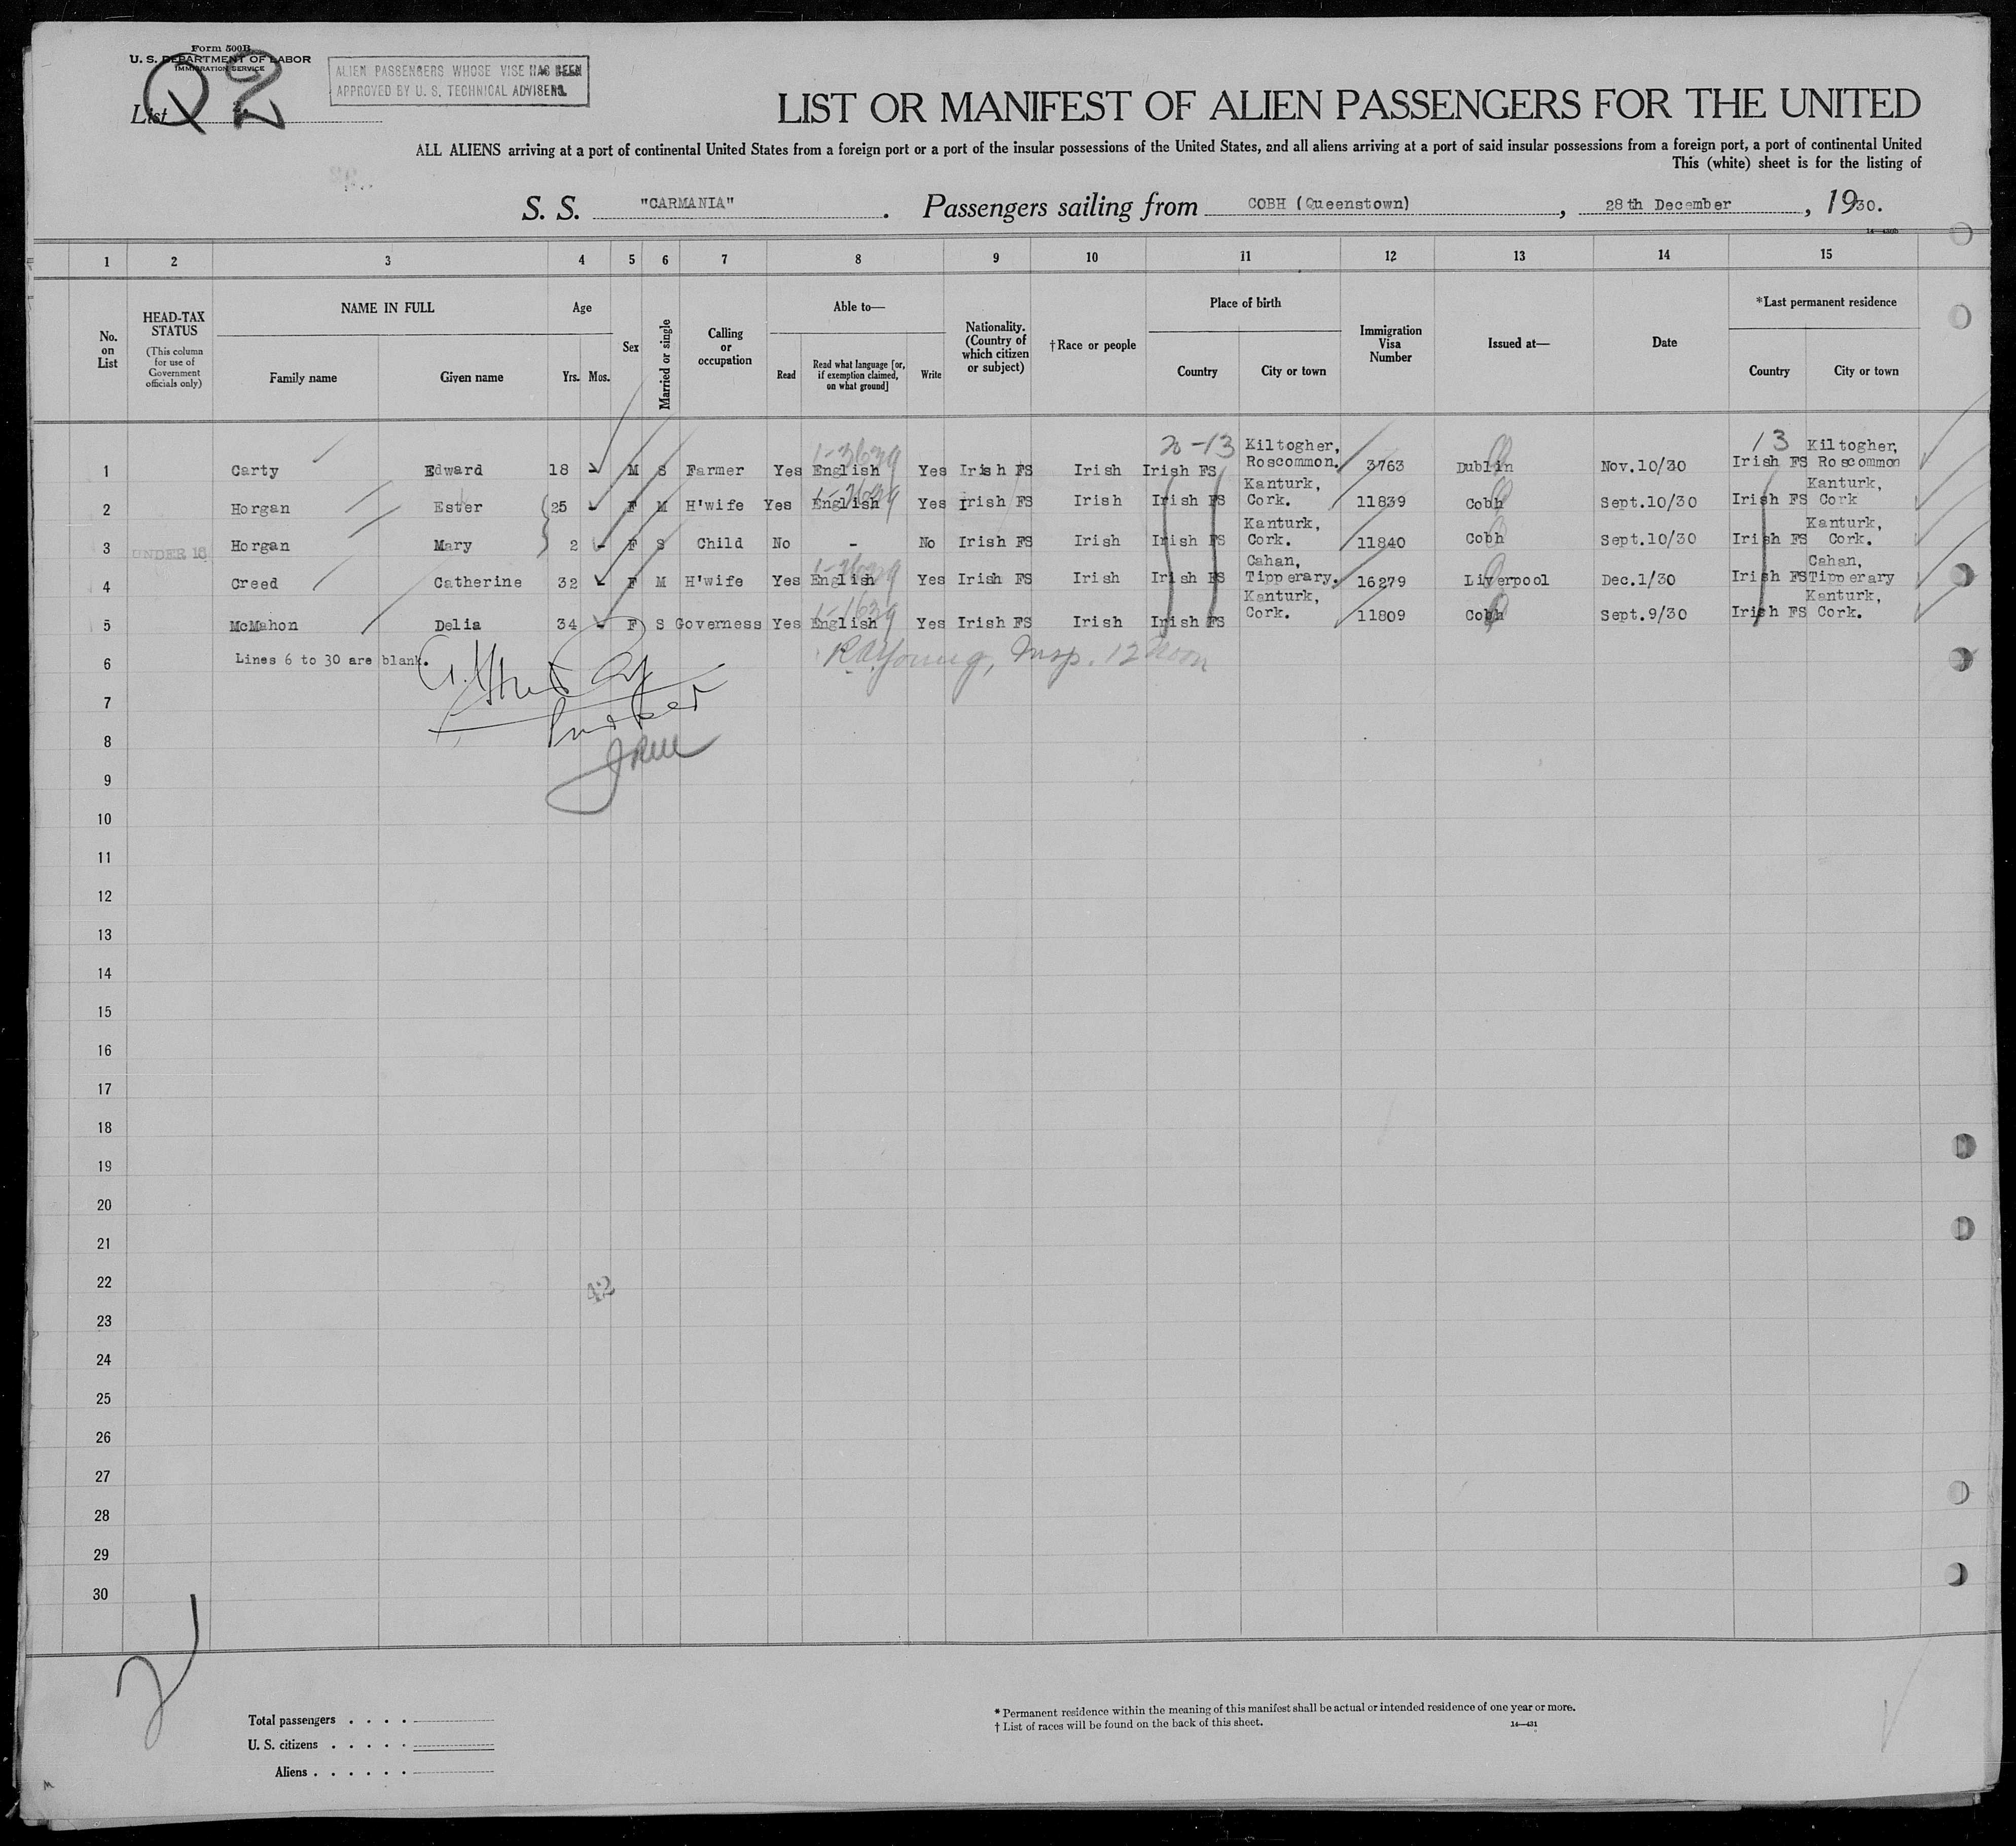 Form 500B
U. S. DEPARTMENT OF LABOR
IMMIGRATION SERVICE
List 2.
Q 2
ALIEN PASSENGERS WHOSE VISE HAS BEEN
APPROVED BY U. S. TECHNICAL ADVISERS.
LIST OR MANIFEST OF ALIEN PASSENGERS FOR THE UNITED
ALL ALIENS arriving at a port of continental United States from a foreign port or a port of the insular possessions of the United States, and all aliens arriving at a port of said insular possessions from a foreign port, a port of continental United
This (white) sheet is for the listing of
S. S. "CARMANIA". Passengers sailing from COBH (Queenstown), 28th December, 1930.
1 2 3 4 5 6 7 8 9 10 11 12 13 14 15
No. on List
HEAD-TAX STATUS
(This column for use of Government officials only)
NAME IN FULL
Family name Given name
Age
Yrs. Mos.
Sex
Married or single
Calling or occupation
Able to—
Read
Read what language [or, if exemption claimed, on what ground]
Write
Nationality. (Country of which citizen or subject)
†Race or people
Place of birth
Country City or town
Immigration Visa Number
Issued at—
Date
*Last permanent residence
Country City or town
20-13 13
1 Carty Edward 18 - M S Farmer Yes English Yes Irish FS Irish Irish FS Kiltogher, Roscommon. 3763 Dublin Nov.10/30 Irish FS Kiltogher, Roscommon
2 Horgan Ester 25 - F M H'wife Yes English Yes Irish FS Irish Irish FS Kanturk, Cork. 11839 Cobh Sept.10/30 Irish FS Kanturk, Cork
3 UNDER 16 Horgan Mary 2 - F S Child No - No Irish FS Irish Irish FS Kanturk, Cork. 11840 Cobh Sept.10/30 Irish FS Kanturk, Cork.
4 Creed Catherine 32 - F M H'wife Yes English Yes Irish FS Irish Irish FS Cahan, Tipperary. 16279 Liverpool Dec.1/30 Irish FS Cahan, Tipperary
5 McMahon Delia 34 - F S Governess Yes English Yes Irish FS Irish Irish FS Kanturk, Cork. 11809 Cobh Sept.9/30 Irish FS Kanturk, Cork.
6 Lines 6 to 30 are blank.
R A Young, Insp. 12 Noon
7
8
9
10
11
12
13
14
15
16
17
18
19
20
21
22
42
23
24
25
26
27
28
29
30
2
Total passengers . . . .
U. S. citizens . . . . .
Aliens . . . . . .
* Permanent residence within the meaning of this manifest shall be actual or intended residence of one year or more.
† List of races will be found on the back of this sheet.
14—431